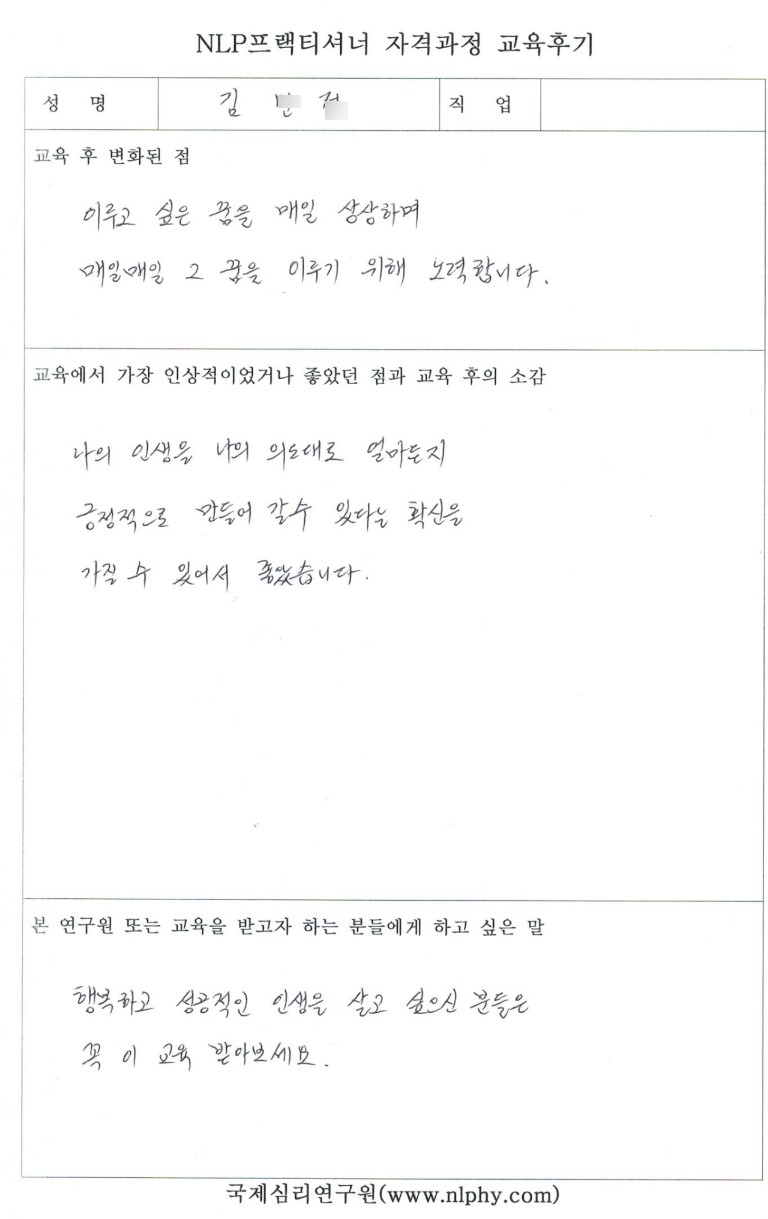 NLP프랙티셔너 자격과정 교육후기
성 명 김 직 업
교육 후 변화된 점
이루고 싶은 꿈을 매일 상상하며
매일매일 그 꿈을 이루기 위해 노력합니다.
교육에서 가장 인상적이었거나 좋았던 점과 교육 후의 소감
나의 인생을 나의 의도대로 얼마든지
긍정적으로 만들어 갈수 있다는 확신을
가질 수 있어서 좋았습니다.
본 연구원 또는 교육을 받고자 하는 분들에게 하고 싶은 말
행복하고 성공적인 인생을 살고 싶으신 분들은
꼭 이 교육 받아보세요.
국제심리연구원(www.nlphy.com)